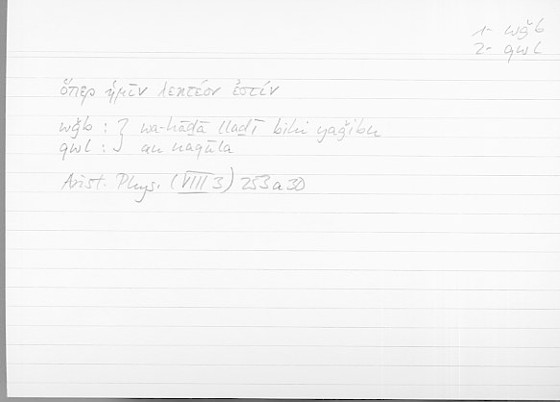 1- wǧb
2- qwl
ὅπερ ἡμῖν λεκτέον ἐστίν
wǧb : } wa-hāḏā llaḏī bihi yaǧibu
qwl : } an naqūla
Arist. Phys. (VIII 3) 253 a 30